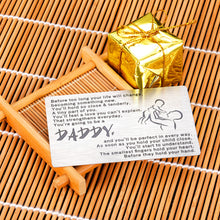 Before too long your life will change,
becoming something new.
You'll hold so close & tenderly,
A tiny part of you.
You'll feel a love you can't explain
That strengthens everyday,
You're going to be a
Daddy,
and you'll be perfect in every way.
As soon as you hold your child close,
You'll start to understand,
The smallest fingers hold your heart,
Before they hold your hand.